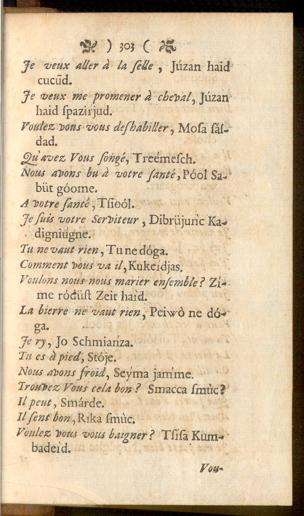 ) 303 (
Je veux aller à la selle, Júzan haid
cucũd.
Je veux me promener à cheval, Júzan
haid spazirjud.
Voulez vous vous deshabiller, Mosa sás-
dad.
Qu'avez Vous songé, Treémesch.
Nous avons bu à votre santé, Póol Sa-
büt góome.
A votre santé, Tsioól.
Je suis votre Serviteur, Dibrüjunc Ka-
digniügne.
Tu ne vaut rien, Tu ne dóga.
Comment vous va il, Kukeidjas.
Voulons nous nous marier ensemble? Zi-
me ródust Zeit haid.
La bierre ne vaut rien, Peiwò ne dó-
ga.
Je ry, Jo Schmianza.
Tu es à pied, Stóje.
Nous avons froid, Seyma jamme.
Trouvez Vous cela bon? Smacca smúc?
Il peut, Smárde.
Il sent bon, Rika smúc.
Voulez vous vous baigner? Tsisa Kum-
badeid.
Vou-